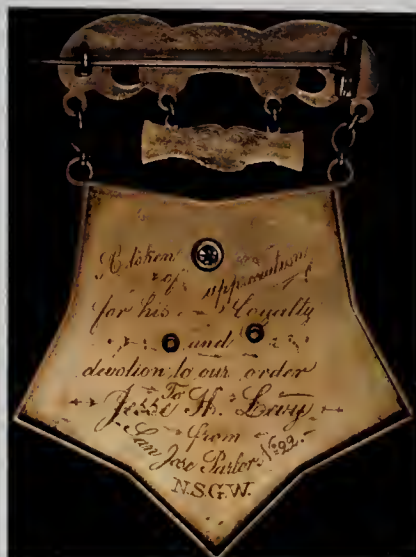 A token
of appreciation
for his Loyalty
and
devotion to our order
To
Jesse H. Levy
from
San Jose Parlor No 22.
N.S.G.W.